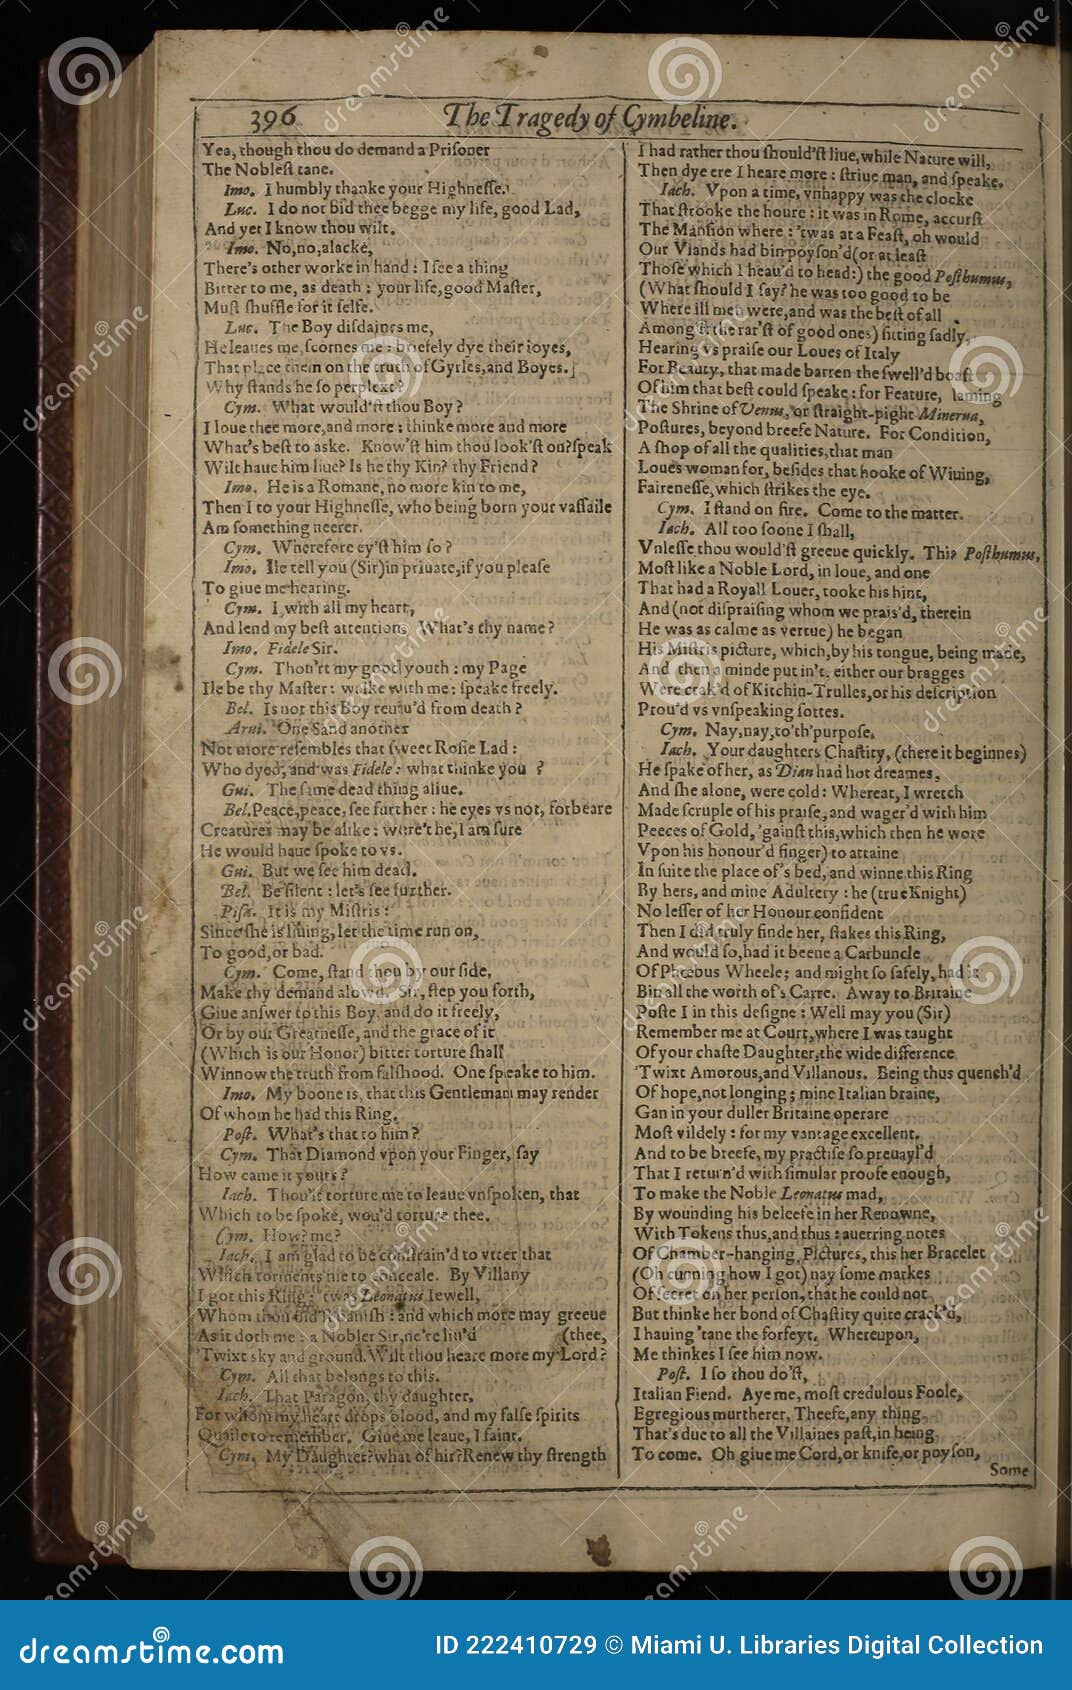 396 The Tragedy of Cymbeline.
Yea, though thou do demand a Prisoner
The Noblest tane.
Imo. I humbly thanke your Highnesse.
Luc. I do not bid thee begge my life, good Lad,
And yet I know thou wilt.
Imo. No, no, alacke,
There's other worke in hand: I see a thing
Bitter to me, as death: your life, good Master,
Must shuffle for it selfe.
Luc. The Boy disdaines me,
He leaues me, scornes me: briefely dye their ioyes,
That place them on the truth of Gyrles, and Boyes.
Why stands he so perplext?
Cym. What would'st thou Boy?
I loue thee more, and more: thinke more and more
What's best to aske. Know'st him thou look'st on? speak
Wilt haue him liue? Is he thy Kin? thy Friend?
Imo. He is a Romane, no more kin to me,
Then I to your Highnesse, who being born your vassaile
Am something neerer.
Cym. Wherefore ey'st him so?
Imo. Ile tell you (Sir) in priuate, if you please
To giue me hearing.
Cym. I, with all my heart,
And lend my best attention. What's thy name?
Imo. Fidele Sir.
Cym. Thou'rt my good youth: my Page
Ile be thy Master: walke with me: speake freely.
Bel. Is not this Boy reuiu'd from death?
Arui. One Sand another
Not more resembles that sweet Rosie Lad:
Who dyed, and was Fidele: what thinke you?
Gui. The same dead thing aliue.
Bel. Peace, peace, see further: he eyes vs not, forbeare
Creatures may be alike: were't he, I am sure
He would haue spoke to vs.
Gui. But we see him dead.
Bel. Be silent: let's see further.
Pisa. It is my Mistris:
Since she is liuing, let the time run on,
To good, or bad.
Cym. Come, stand thou by our side,
Make thy demand alowd. Sir, step you forth,
Giue answer to this Boy, and do it freely,
Or by our Greatnesse, and the grace of it
(Which is our Honor) bitter torture shall
Winnow the truth from falshood. One speake to him.
Imo. My boone is, that this Gentleman may render
Of whom he had this Ring.
Post. What's that to him?
Cym. That Diamond vpon your Finger, say
How came it yours?
Iach. Thou'lt torture me to leaue vnspoken, that
Which to be spoke, wou'd torture thee.
Cym. How? me?
Iach. I am glad to be constrain'd to vtter that
Which torments me to conceale. By Villany
I got this Ring: 'twas Leonatus Iewell,
Whom thou did'st banish: and which more may greeue
As it doth me: a Nobler Sir, ne're liu'd (thee,
'Twixt sky and ground. Wilt thou heare more my Lord?
Cym. All that belongs to this.
Iach. That Paragon, thy daughter,
For whom my heart drops blood, and my false spirits
Quaile to remember. Giue me leaue, I faint.
Cym. My Daughter? what of hir? Renew thy strength
I had rather thou should'st liue, while Nature will,
Then dye ere I heare more: striue man, and speake.
Iach. Vpon a time, vnhappy was the clocke
That strooke the houre: it was in Rome, accurst
The Mansion where: 'twas at a Feast, oh would
Our Viands had bin poyson'd (or at least
Those which I heau'd to head:) the good Posthumus,
(What should I say? he was too good to be
Where ill men were, and was the best of all
Among'st the rar'st of good ones) sitting sadly,
Hearing vs praise our Loues of Italy
For Beauty, that made barren the swell'd boast
Of him that best could speake: for Feature, laming
The Shrine of Venus, or straight-pight Minerua,
Postures, beyond breefe Nature. For Condition,
A shop of all the qualities, that man
Loues woman for, besides that hooke of Wiuing,
Fairenesse, which strikes the eye.
Cym. I stand on fire. Come to the matter.
Iach. All too soone I shall,
Vnlesse thou would'st greeue quickly. This Posthumus,
Most like a Noble Lord, in loue, and one
That had a Royall Louer, tooke his hint,
And (not dispraising whom we prais'd, therein
He was as calme as vertue) he began
His Mistris picture, which, by his tongue, being made,
And then a minde put in't, either our bragges
Were crak'd of Kitchin-Trulles, or his description
Prou'd vs vnspeaking sottes.
Cym. Nay, nay, to'th'purpose.
Iach. Your daughters Chastity, (there it beginnes)
He spake of her, as Dian had hot dreames,
And she alone, were cold: Whereat, I wretch
Made scruple of his praise, and wager'd with him
Peeces of Gold, 'gainst this, which then he wore
Vpon his honour'd finger) to attaine
In suite the place of's bed, and winne this Ring
By hers, and mine Adultery: he (true Knight)
No lesser of her Honour confident
Then I did truly finde her, stakes this Ring,
And would so, had it beene a Carbuncle
Of Phœbus Wheele; and might so safely, had it
Bin all the worth of's Carre. Away to Britaine
Poste I in this designe: Well may you (Sir)
Remember me at Court, where I was taught
Of your chaste Daughter, the wide difference
'Twixt Amorous, and Villanous. Being thus quench'd
Of hope, not longing; mine Italian braine,
Gan in your duller Britaine operare
Most vildely: for my vantage excellent.
And to be breefe, my practise so preuayl'd
That I return'd with simular proofe enough,
To make the Noble Leonatus mad,
By wounding his beleefe in her Renowne,
With Tokens thus, and thus: auerring notes
Of Chamber-hanging, Pictures, this her Bracelet
(Oh cunning how I got) nay some markes
Of secret on her person, that he could not
But thinke her bond of Chastity quite crack'd,
I hauing 'tane the forfeyt. Whereupon,
Me thinkes I see him now.
Post. I so thou do'st,
Italian Fiend. Aye me, most credulous Foole,
Egregious murtherer, Theefe, any thing
That's due to all the Villaines past, in being
To come. Oh giue me Cord, or knife, or poyson,
Some
dreamstime.com
ID 222410729 © Miami U. Libraries Digital Collection